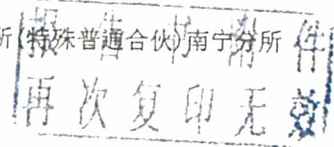 所(特殊普通合伙)南宁分所
报告书附件
再次复印无效